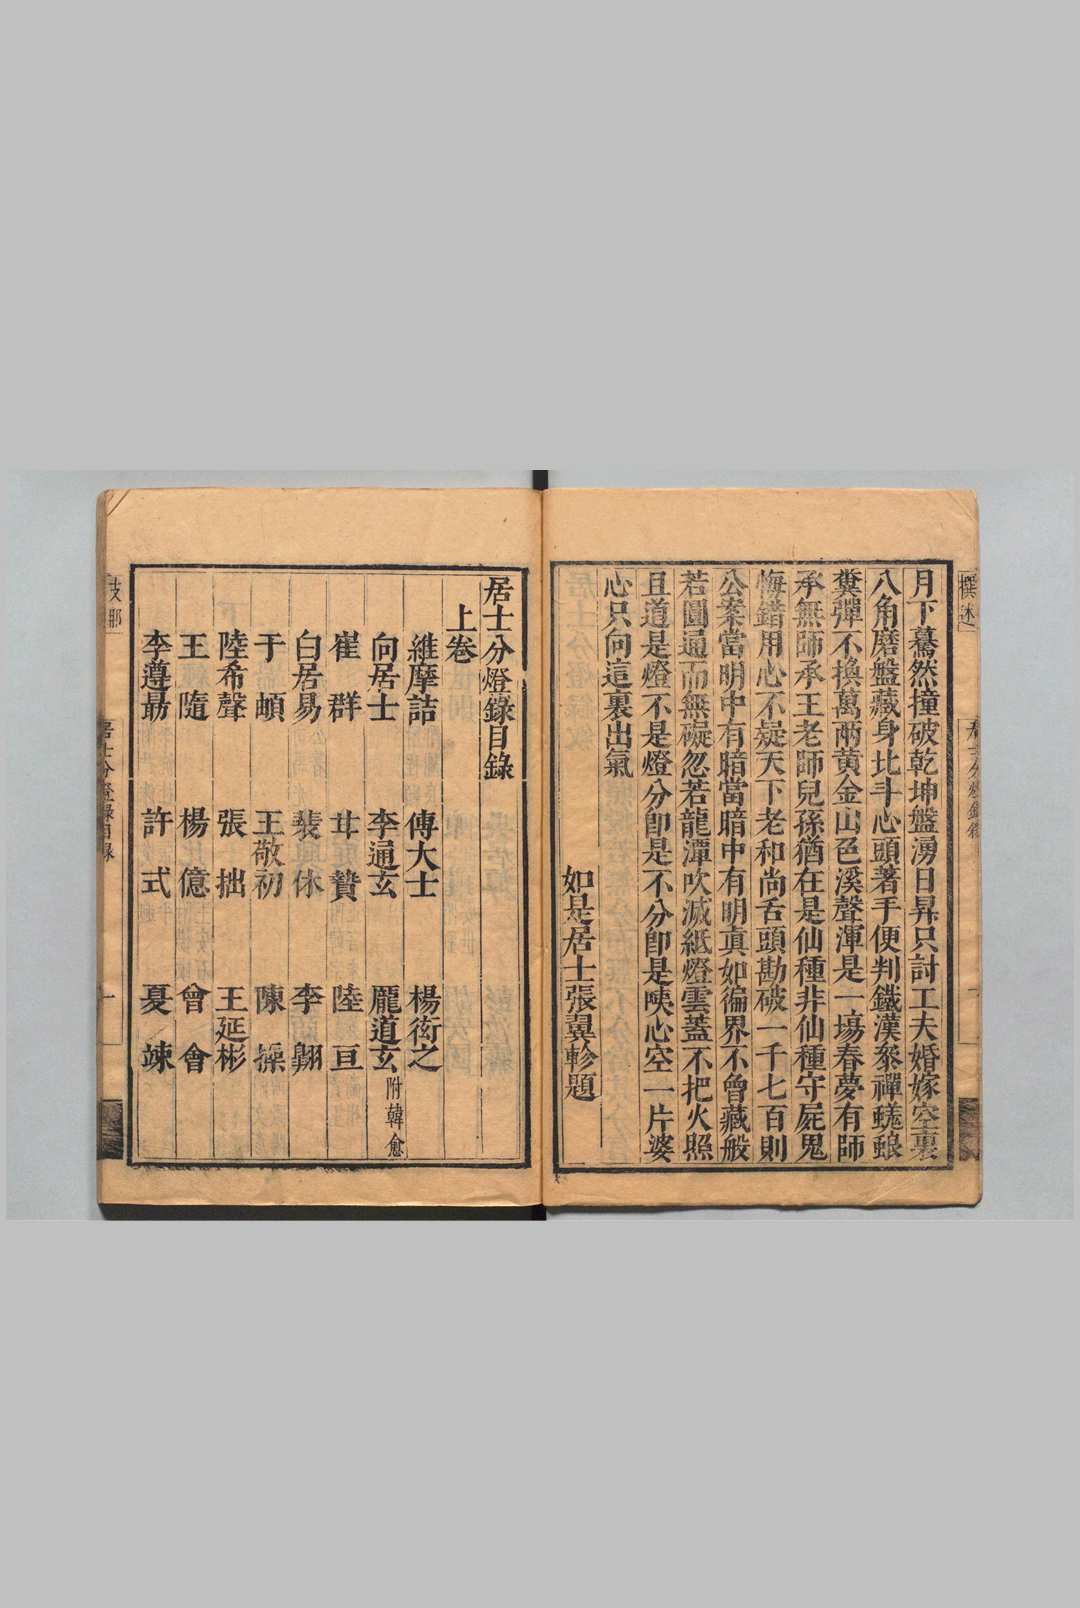 月下驀然撞破乾坤盤湧日昇只討工夫婚嫁空裏
八角磨盤藏身北斗心頭著手便判鐵漢叅禪蜣蜋
糞彈不換萬兩黃金山色溪聲渾是一場春夢有師
承無師承王老師兒孫猶在是仙種非仙種守屍鬼
悔錯用心不疑天下老和尚舌頭勘破一千七百則
公案當明中有暗當暗中有明真如徧界不曾藏般
若圓通而無礙忽若龍潭吹滅紙燈雲蓋不把火照
且道是燈不是燈分卽是不分卽是陝心空一片婆
心只向這裏出氣
如是居士張翼軫題
居士分燈錄目錄
上卷
維摩詰 傅大士 楊衒之
向居士 李通玄 龐道玄 附韓愈
崔群 甘贄 陸亘
白居易 裴休 李翱
于頔 王敬初 陳操
陸希聲 張拙 王延彬
王隨 楊億 曾會
李遵勗 許式 夏竦
撰述
支那
居士分燈錄目錄
一